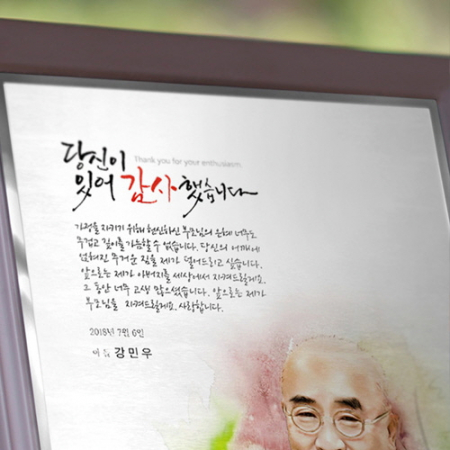 당신이
Thank you for your enthusiasm
있어 감사했습니다
가정을 지키기 위해 헌신하신 부모님의 은혜 너무도
무겁고 깊이를 가늠할 수 없습니다. 당신의 어깨에
얹혀진 무거운 짐을 제가 덜어드리고 싶습니다.
앞으로는 제가 아버지를 세상에서 지켜드릴게요.
그 동안 너무 고생 많으셨습니다. 앞으로는 제가
부모님을 지켜드릴게요. 사랑합니다.
2018년 7월 6일
강민우